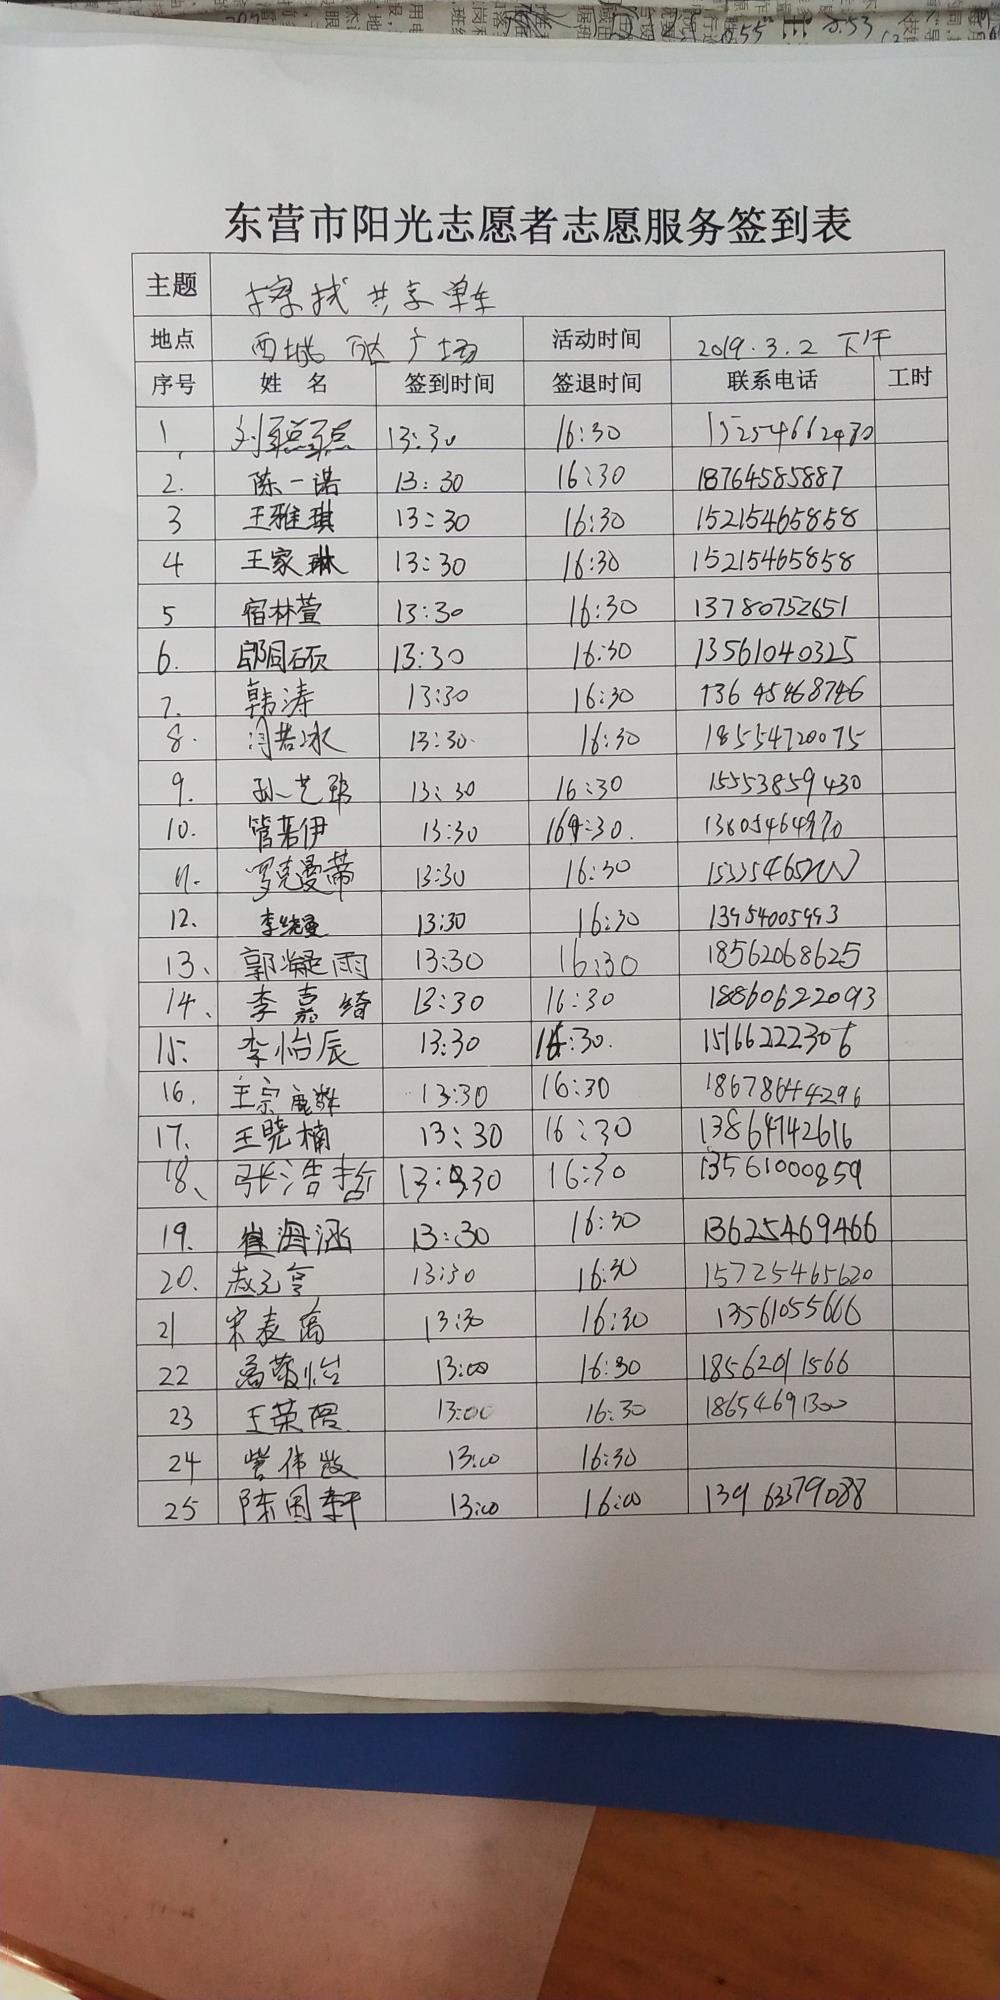 东营市阳光志愿者志愿服务签到表
主题 擦找共享单车
地点 西城 万达广场 活动时间 2019.3.2 下午
序号 姓 名 签到时间 签退时间 联系电话 工时
1 刘 13:30 16:30 15254662480
2. 陈一诺 13:30 16:30 18764585887
3 王雅琪 13:30 16:30 15215465858
4 王家琳 13:30 16:30 15215465858
5 宿林萱 13:30 16:30 13780752651
6. 13:30 16:30 13561040325
7. 韩涛 13:30 16:30 13645468746
8. 闫若冰 13:30 16:30 18554720075
9. 孙艺 13:30 16:30 15553859430
10. 管若伊 13:30 16:30. 13605464970
11. 罗克曼蒂 13:30 16:30
12. 李绕曼 13:30 16:30 13954005993
13、 郭凝雨 13:30 16:30 18562068625
14、 李嘉绮 13:30 16:30 18860622093
15. 李怡辰 13:30 16:30. 15166222306
16. 王宗 13:30 16:30 18678644296
17. 王晓楠 13:30 16:30 13864742616
18、 张浩哲 13:30 16:30 13561000859
19. 崔海涵 13:30 16:30 13625469466
20. 赵元亨 13:30 16:30 15725465620
21 宋 13:30 16:30 13561055666
22 高 怡 13:00 16:30 18562011566
23 王荣 13:00 16:30 18654691300
24 伟 13:00 16:30
25 陈 轩 13:00 16:00 13963379088